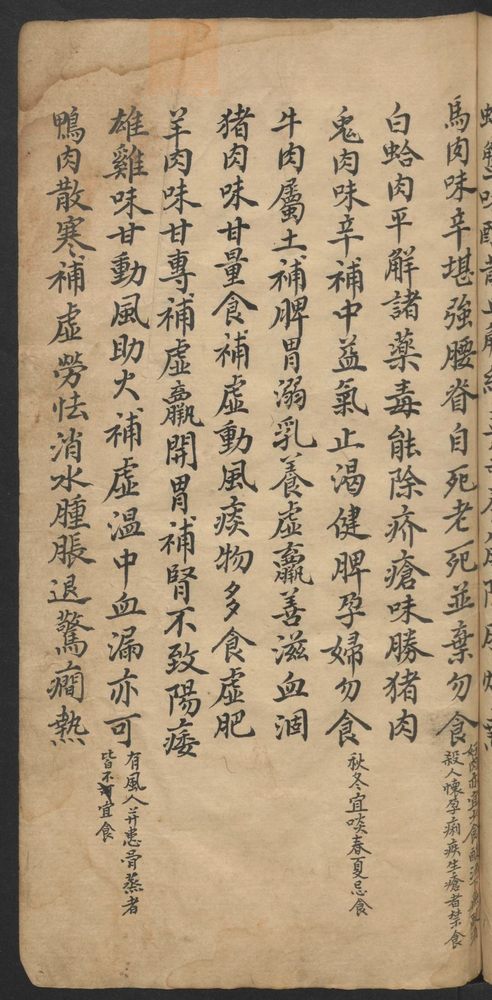 馬肉味辛堪強腰脊自死老死並棄勿食
好肉亦宜
殺人懷孕痢疾生瘡者禁食
白蛤肉平解諸藥毒能除疥瘡味勝猪肉
兔肉味辛補中益氣止渴健脾孕婦勿食
秋冬宜啖春夏忌食
牛肉屬土補脾胃溺乳養虛羸善滋血涸
猪肉味甘量食補虛動風痰物多食虛肥
羊肉味甘專補虛羸開胃補腎不致陽痿
雄雞味甘動風助火補虛溫中血漏亦可
有風人并患骨蒸者
皆不宜食
鴨肉散寒補虛勞怯消水腫脹退驚癇熱